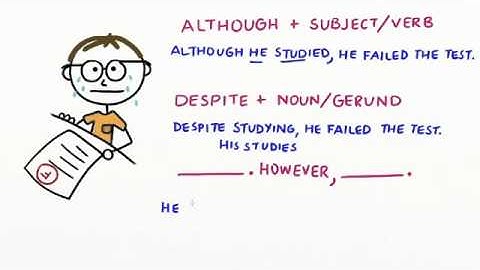 ALTHOUGH + SUBJECT/VERB
ALTHOUGH HE STUDIED, HE FAILED THE TEST.
DESPITE + NOUN/GERUND
DESPITE STUDYING, HE FAILED THE TEST.
HIS STUDIES
________. HOWEVER, ________.
HE